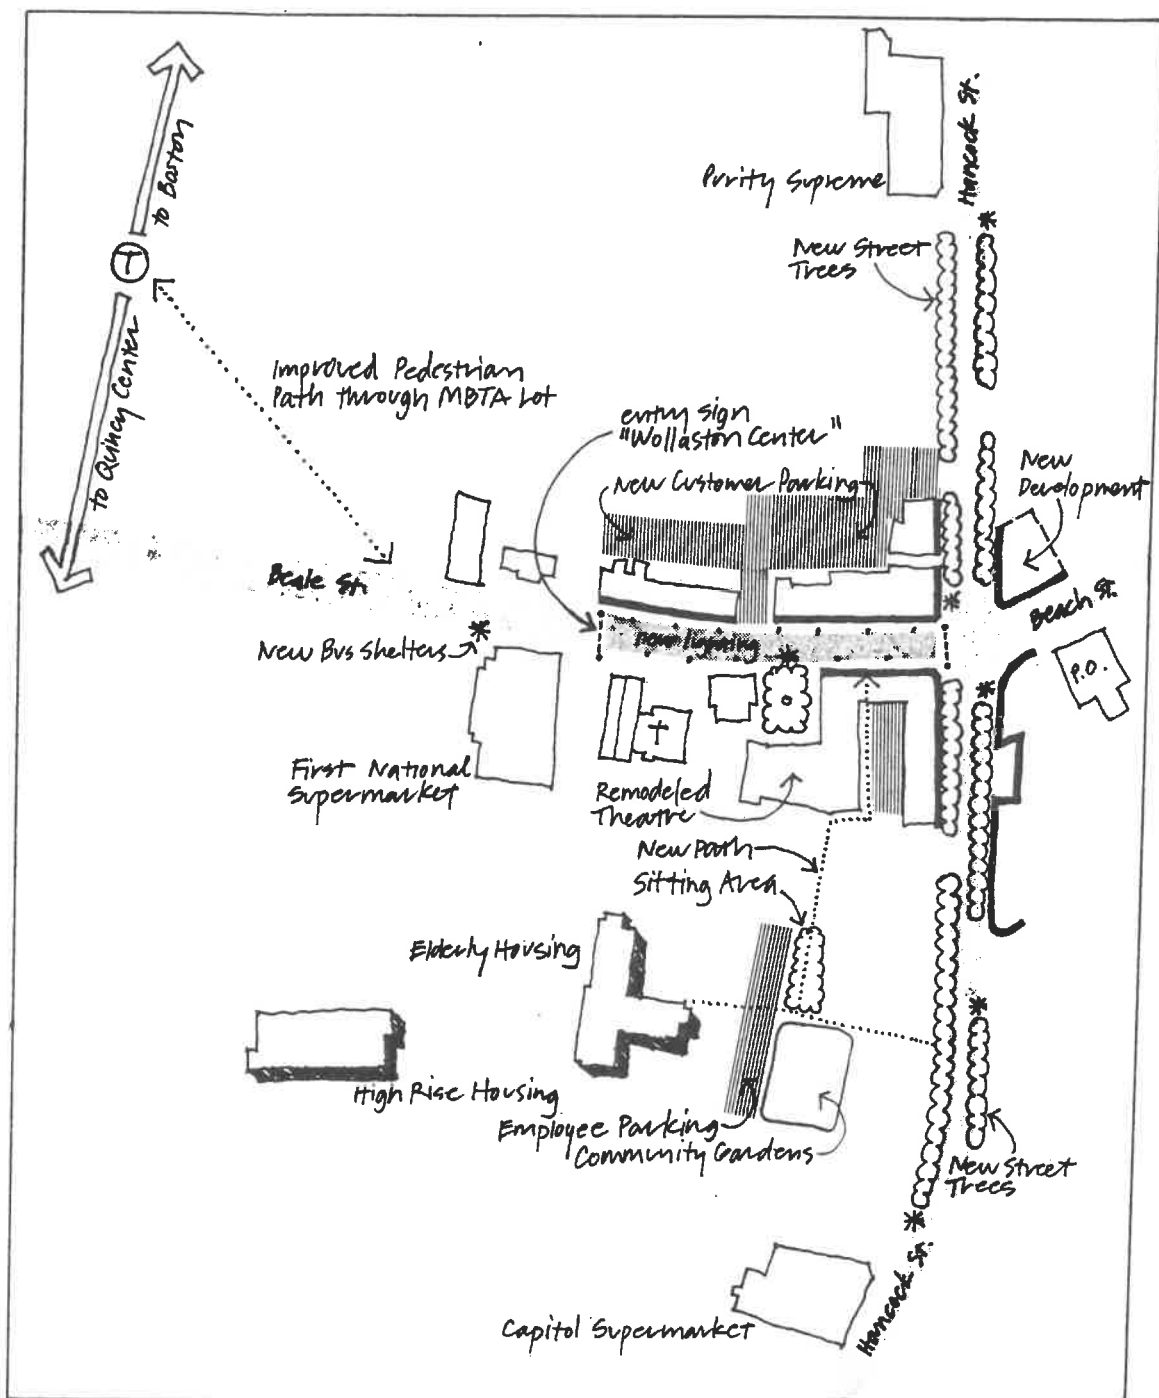 Hancock St.
to Boston
Purity Supreme
T
New Street
Trees
to Quincy Center
Improved Pedestrian
Path through MBTA Lot
entry sign
"Wollaston Center"
New Customer Parking
New
Development
Beale St.
Beach St.
New Bus Shelters
new lighting
P.O.
First National
Supermarket
Remodeled
Theatre
New Path
Sitting Area
Elderly Housing
High Rise Housing
Employee Parking
Community Gardens
New Street
Trees
Hancock St.
Capitol Supermarket